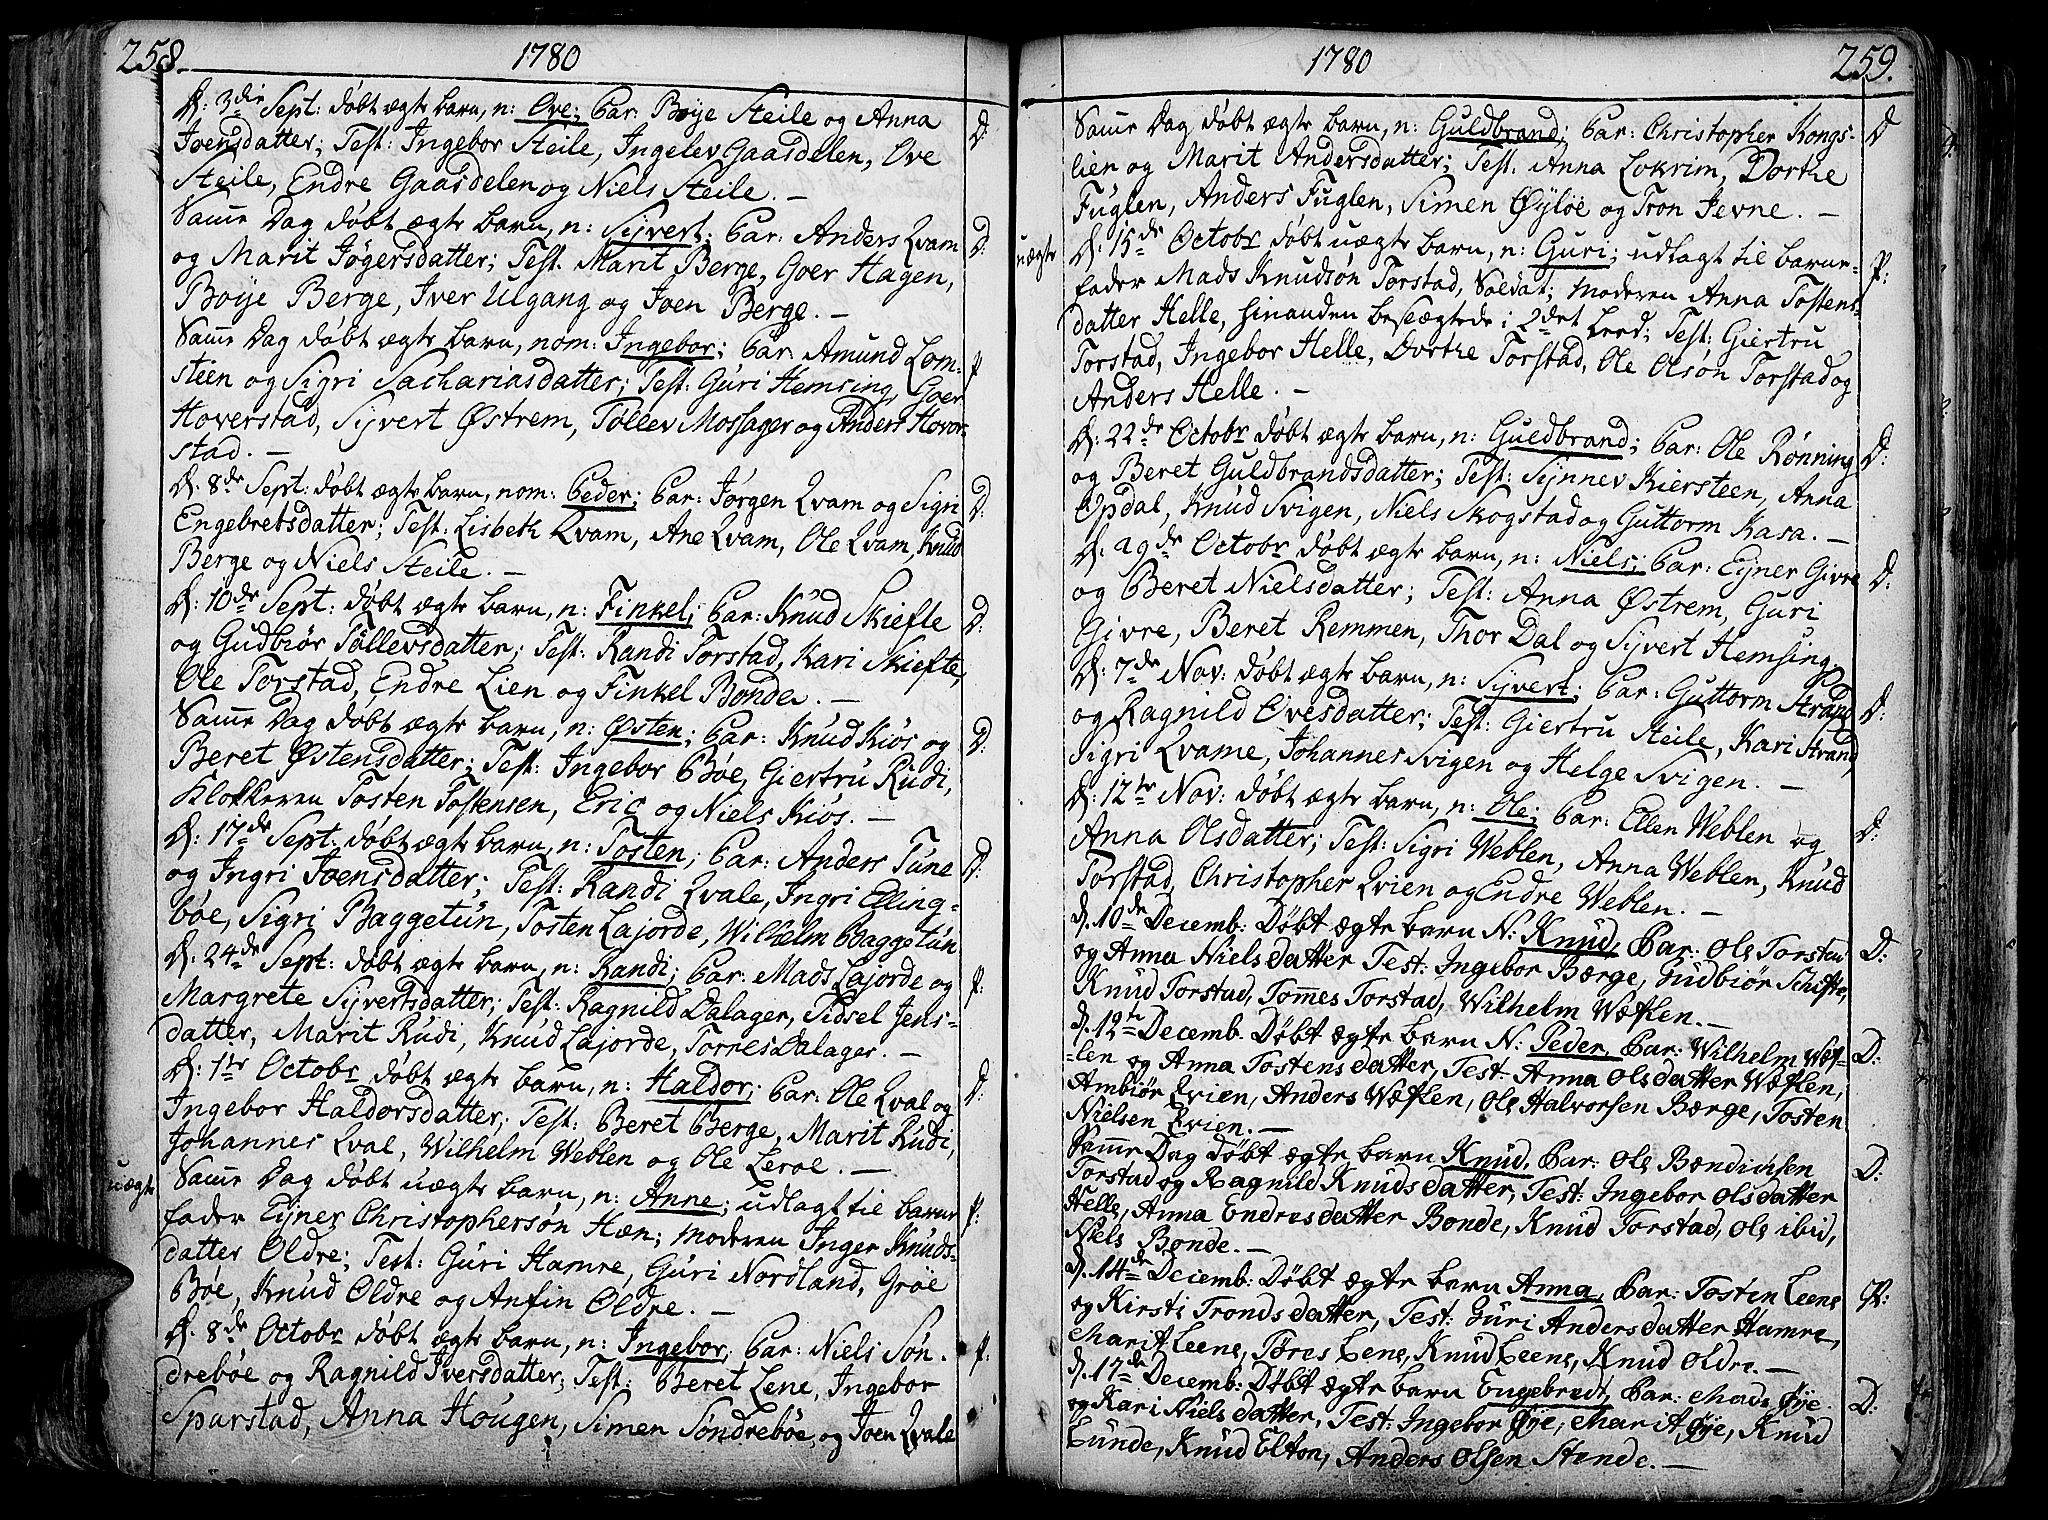 258.
1780
D: 3die Sept: døbt ægte barn, n: Ove; Par: Boye Steile og Anna
D.
Joensdatter; Test: Ingebor Steile, Ingelev Gaasdelen, Ove
Steile, Endre Gaasdelen og Niels Steile. —
Samme Dag døbt ægte barn, n: Syvert; Par: Anders Qvam
D.
og Marit Jøgersdatter; Test. Marit Berge, Goer Hagen,
Boye Berge, Iver Ulgang og Joen Berge. —
Samme Dag døbt ægte barn, nom: Ingebor; Par: Amund Lom-
P
steen og Sigri Sachariasdatter; Test: Guri Hemsing, Goer
Hoverstad, Syvert Østrem, Tøllev Mossager og Anders Hover-
stad. —
D: 8de Sept: døbt ægte barn, nom: Peder; Par: Jørgen Qvam og Sigri
D.
Engebretsdatter; Test: Lisbeth Qvam, Ane Qvam, Ole Qvam, Knud
Berge og Niels Steile. —
D: 10de Sept: døbt ægte barn, n: Finkel; Par: Knud Skiefte
D:
og Gudbiør Tøllevsdatter; Test: Randi Torstad, Kari Skiefte,
Ole Torstad, Endre Lien og Finkel Bonde. —
Samme Dag døbt ægte barn, n: Østen; Par: Knud Kiøs og
D.
Beret Østensdatter; Test: Ingebor Bøe, Giertru Rudi,
Klokkeren Tosten Tostensen, Eric og Niels Kiøs. —
D: 17de Sept: døbt ægte barn, n: Tosten; Par: Anders Tune
D:
og Ingri Joensdatter; Test: Randi Qvale, Ingri Elling-
bøe, Sigri Baggetun, Tosten Lajorde, Wilhelm Baggetun
D: 24de Sept: døbt ægte barn, n: Randi; Par: Mads Lajorde og
P.
Margrete Syvertsdatter; Test: Ragnild Dalager, Sidsel Jens-
datter, Marit Rudi, Knud Lajorde, Torres Dalager. —
D: 1te Octobr døbt ægte barn, n: Haldor; Par: Ole Qval og
D:
Ingebor Haldorsdatter; Test: Beret Berge, Marit Rudi,
Johannes Qval, Wilhelm Weblen og Ole Leroe. —
uægte
Samme Dag døbt uægte barn, n: Anne; udlagt til barne
P:
fader Eyner Christophersøn Hæn; moderen Inger Knuds-
datter Oldre; Test: Guri Hamre, Guri Nordland, Grøe
Bøe, Knud Oldre og Anfin Oldre. —
D. 8de Octobr døbt ægte barn, n: Ingebor; Par: Niels Søn-
P:
drebøe og Ragnild Iversdatter; Test: Beret Lene, Ingebor
Sparstad, Anna Hougen, Simen Søndrebøe og Joen Qvale
1780
259.
Samme Dag døbt ægte barn, n: Guldbrand; Par: Christopher Kongs-
D
lien og Marit Andersdatter; Test: Anna Lokrim, Dorthe
Fuglen, Anders Fuglen, Simen Øyløe og Tron Jevne. —
uægte
D: 15de Octobr døbt uægte barn, n: Guri; udlagt til barne-
P:
fader Mads Knudsøn Torstad, Soldat; moderen Anna Tostens-
datter Helle, hinanden beslægtede i 2det leed; Test: Giertru
Torstad, Ingebor Helle, Dorthe Torstad, Ole Olsøn Torstad og
Anders Helle. —
D: 22de Octobr døbt ægte barn, n: Guldbrand; Par: Ole Rønning
D:
og Beret Guldbrandsdatter; Test: Synnev Kiersteen, Anna
Opdal, Knud Svigen, Niels Skogstad og Guttorm Kasa. —
D: 29de Octobr døbt ægte barn, n: Niels; Par: Eyner Givre
D:
og Beret Nielsdatter; Test: Anna Østrem, Guri
Givre, Beret Remmen, Thor Dal og Syvert Hemsing.
D: 7de Nov: døbt ægte barn, n: Syvert; Par: Guttorm Strand
D:
og Ragnild Evesdatter; Test: Giertru Steile, Kari Strand,
Sigri Qvame, Johannes Svigen og Helge Svigen. —
D: 12te Nov: døbt ægte barn, n: Ole; Par: Ellen Weblen og
D:
Anna Olsdatter; Test: Sigri Weblen, Anna Weblen, Knud
Torstad, Christopher Qvien og Endre Weblen. —
d. 10de Decemb: Døbt ægte barn N: Knud, Par: Ole Torstad
D:
og Anna Nielsdatter Test: Ingebor Bærge, Gudbiør Schifte,
Knud Torstad, Tommes Torstad, Wilhelm Wæflen. —
d. 12te Decemb. Døbt ægte barn N: Peder, Par: Wilhelm Wæf-
D:
-len og Anna Tostensdatter, Test: Anna Olsdatter Wæflen,
Ambiør Qvien, Anders Wæflen, Ole Halvorsen Bærge, Tosten
Nielsen Qvien. —
Samme Dag Døbt ægte barn Knud, Par: Ole Bændixsen
D:
Torstad og Ragnild Knudsdatter, Test: Ingebor Olsdatter
Helle, Anna Endresdatter Bonde, Knud Torstad, Ole ibid,
Niels Bonde. —
d. 14de Decemb: Døbt ægte barn Anna, Par: Tosten Leene
P:
og Kirsti Trondsdatter, Test: Guri Andersdatter Hamre,
Marit Leene, Tøres Leene, Knud Leene, Knud Oldre. —
d. 17de Decemb: Døbt ægte barn Engebredt, Par: Mads Øye
D:
og Kari Nielsdatter, Test: Ingebor Øye, Marit Øye, Knud
Lunde, Knud Elton, Anders Olsen Stende. —